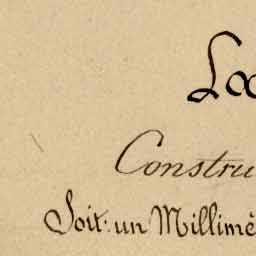 Loc
Constru
Soit: un Millimè